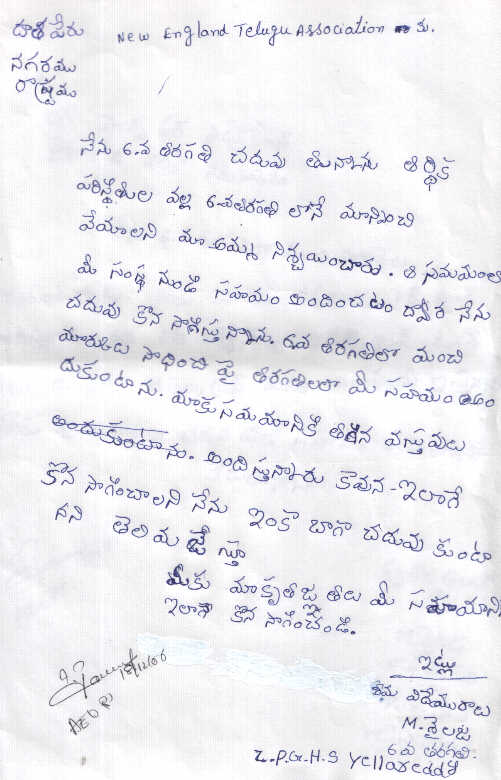 దాత పేరు New England Telugu Association కు.
నగరము
రాష్ట్రము
నేను 6.వ తరగతి చదువు తున్నాను ఆర్థిక
పరిస్థితుల వల్ల 6వతరగతి లోనే మాన్పించి
వేయాలని మా అమ్మ నిశ్చయించారు. ఆ సమయంలో
మీ సంస్థ నుండి సహయం అందించటం ద్వార నేను
చదువు కొన సాగిస్తున్నాను. 6వ తరగతిలో మంచి
మార్కులు సాధించి పై తరగతులలో మీ సహయం అం
దుకుంటాను. మాకు సమయానికి తగిన వస్తువులు
అందుకుంటాను. అంది స్తున్నారు కావున - ఇలాగే
కొన సాగించాలని నేను ఇంకా బాగా చదువు కుంటా
నని తెలియ జే స్తూ
మీకు మాకృతజ్ఞతలు మీ సహాయాని
ఇలాగే కొన సాగించండి.
ఇట్లు
తమ విధేయురాలు
M. శైలజ
6వ తరగతి.
Z.P.G.H.S Yellareddy
18/12/06